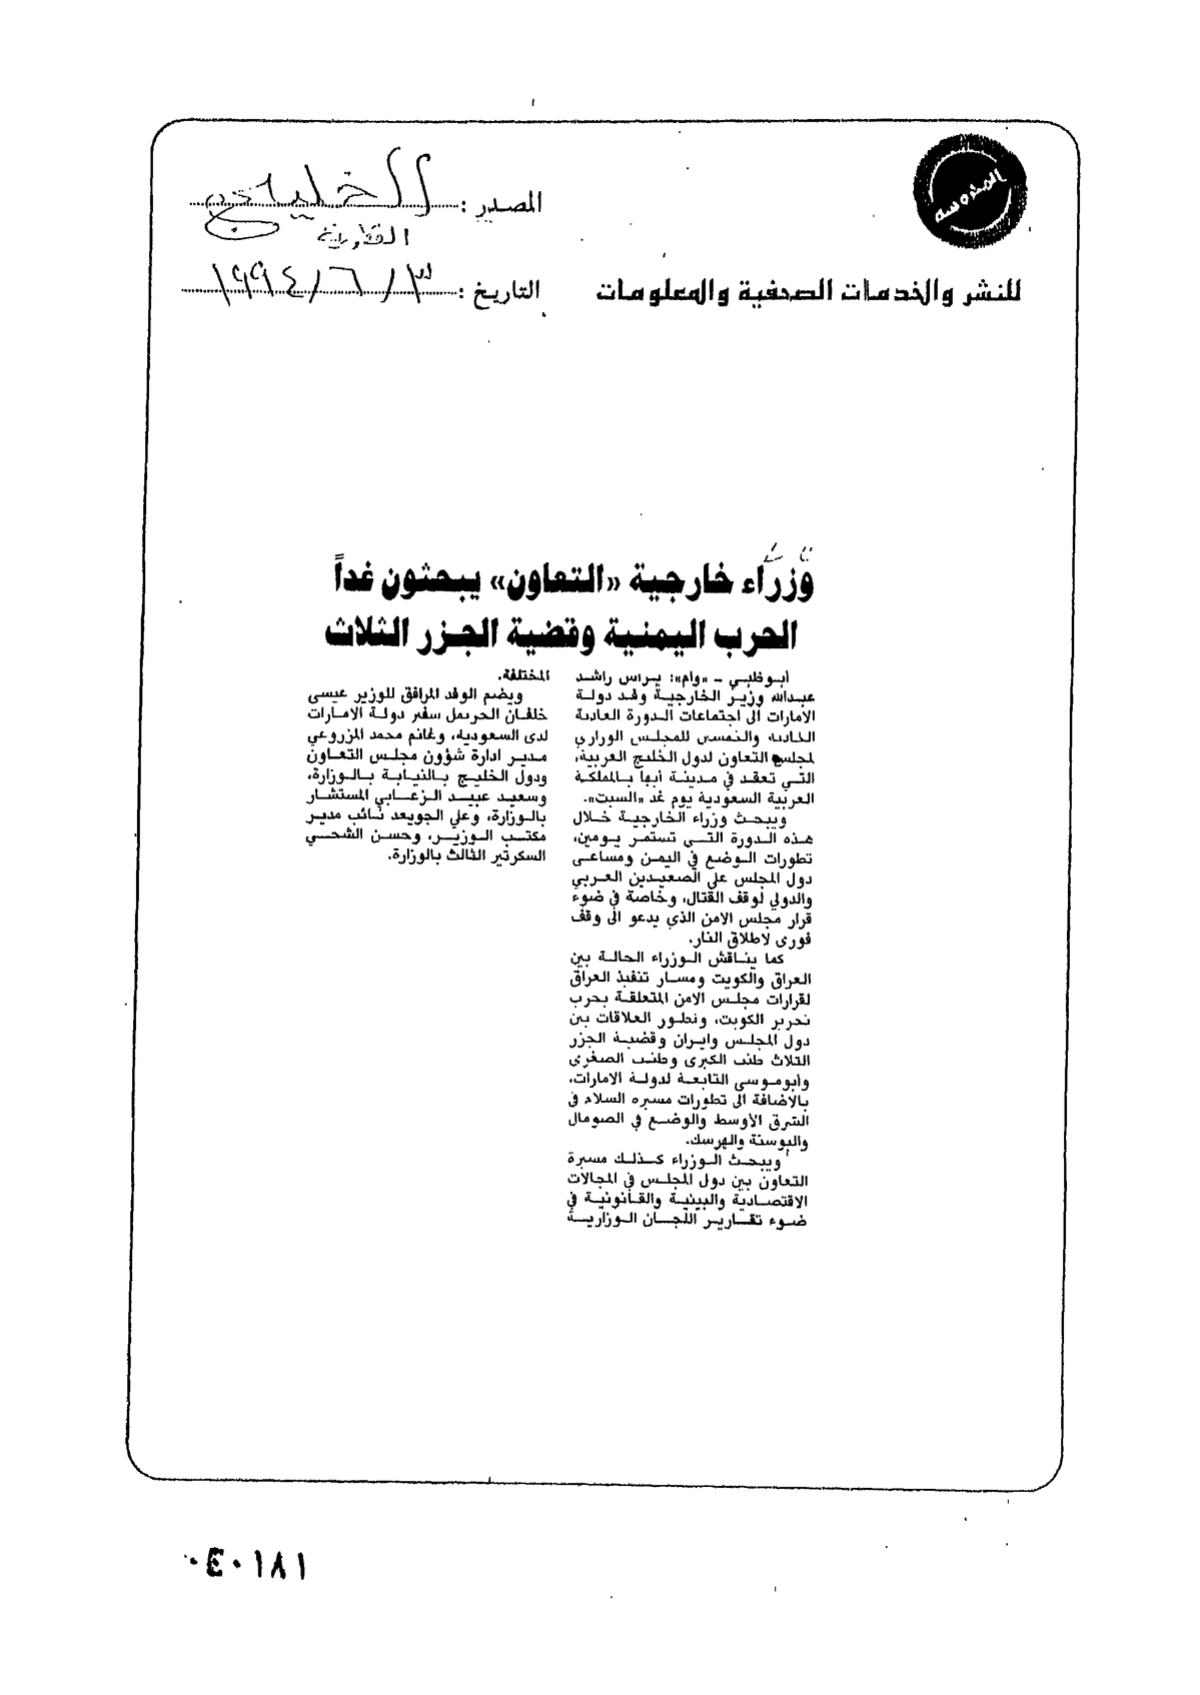 المحروسة
المصدر : الخليج
القارية
للنشر والخدمات الصحفية والمعلومات
التاريخ : ٣ / ٦ / ١٩٩٤
وزراء خارجية «التعاون» يبحثون غداً
الحرب اليمنية وقضية الجزر الثلاث
أبوظبي - «وام»: يرأس راشد
عبدالله وزير الخارجية وفد دولة
الامارات الى اجتماعات الدورة العادية
الحادية والخمسين للمجلس الوزاري
لمجلس التعاون لدول الخليج العربية،
التي تعقد في مدينة أبها بالمملكة
العربية السعودية يوم غد «السبت».
ويبحث وزراء الخارجية خلال
هذه الدورة التي تستمر يومين،
تطورات الوضع في اليمن ومساعي
دول المجلس على الصعيدين العربي
والدولي لوقف القتال، وخاصة في ضوء
قرار مجلس الامن الذي يدعو الى وقف
فورى لاطلاق النار.
كما يناقش الوزراء الحالة بين
العراق والكويت ومسار تنفيذ العراق
لقرارات مجلس الامن المتعلقة بحرب
تحرير الكويت، وتطور العلاقات بين
دول المجلس وايران وقضية الجزر
الثلاث طنب الكبرى وطنب الصغرى
وأبوموسى التابعة لدولة الامارات،
بالاضافة الى تطورات مسيرة السلام في
الشرق الأوسط والوضع في الصومال
والبوسنة والهرسك.
ويبحث الوزراء كذلك مسيرة
التعاون بين دول المجلس في المجالات
الاقتصادية والبيئية والقانونية في
ضوء تقارير اللجان الوزارية
المختلفة.
ويضم الوفد المرافق للوزير عيسى
خلفان الحريمل سفير دولة الامارات
لدى السعودية، وغانم محمد المزروعي
مدير ادارة شؤون مجلس التعاون
ودول الخليج بالنيابة بالوزارة،
وسعيد عبيد الزعابي المستشار
بالوزارة، وعلي الجويعد نائب مدير
مكتب الوزير، وحسن الشحي
السكرتير الثالث بالوزارة.
٠٤٠١٨١